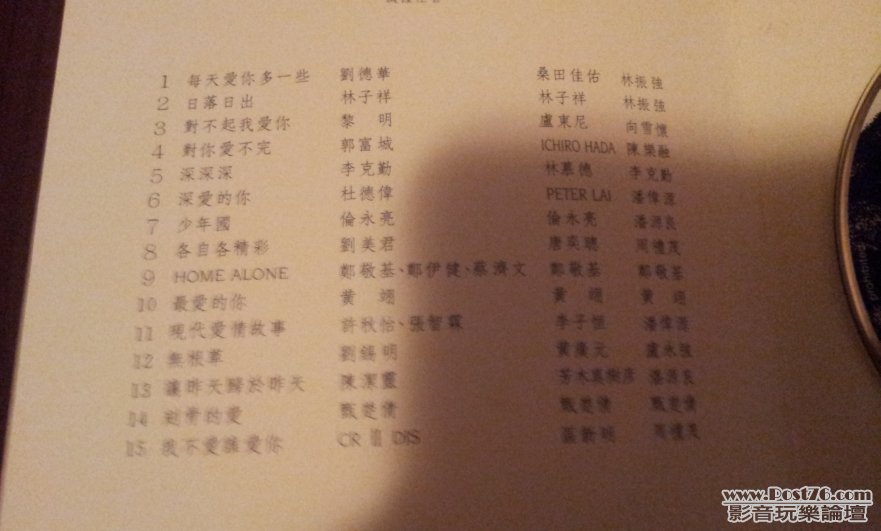 1 每天愛你多一些 劉德華 桑田佳佑 林振強
2 日落日出 林子祥 林子祥 林振強
3 對不起我愛你 黎明 盧東尼 向雪懷
4 對你愛不完 郭富城 ICHIRO HADA 陳樂融
5 深深深 李克勤 林慕德 李克勤
6 深愛的你 杜德偉 PETER LAI 潘偉源
7 少年國 倫永亮 倫永亮 潘源良
8 各自各精彩 劉美君 唐奕聰 周禮茂
9 HOME ALONE 鄭敬基、鄭伊健、蔡濟文 鄭敬基 鄭敬基
10 最愛的你 黃翊 黃翊 黃翊
11 現代愛情故事 許秋怡、張智霖 李子恒 潘偉源
12 無根草 劉錫明 黃慶元 盧永強
13 讓昨天歸於昨天 陳潔靈 芳木慕樹彦 潘源良
14 的愛 甄楚倩 甄楚倩 甄楚倩
15 我不愛誰愛你 周禮茂
www.Post76.com
影音玩樂論壇